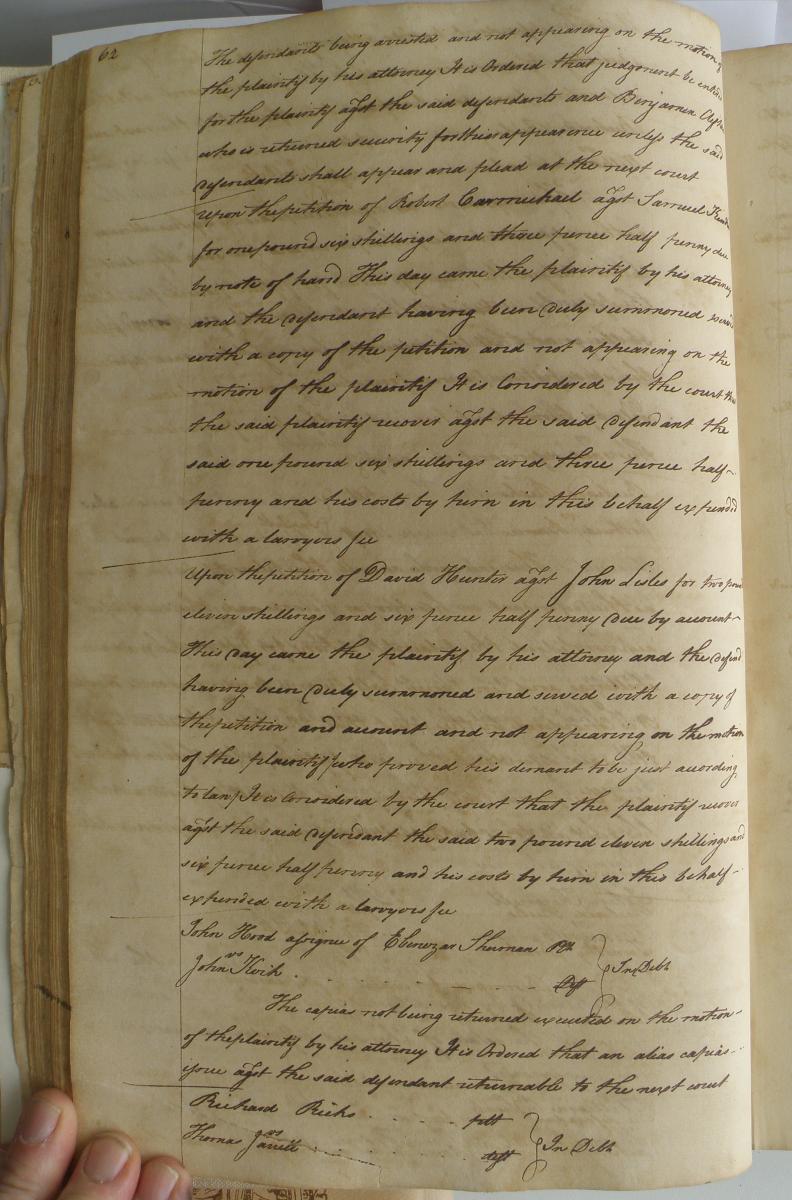 62
The defendants being arrested and not appearing on the motion of
the plaintif by his attorney It is Ordered that judgement be
for the plaintif agst the said defendants and Benjamin
who is returned security for their appearance unless the said
defendants shall appear and plead at the next court
Upon the petition of Robert Carmichael agst Samuel
for one pound six shillings and three pence half penny due
by note of hand This day came the plaintif by his attorney
and the defendant having been duly summoned
with a copy of the petition and not appearing on the
motion of the plaintif It is Considered by the court that
the said plaintif recover agst the said defendant the
said one pound six shillings and three pence half-
penny and his costs by him in this behalf expended
with a lawyers fee
Upon the petition of David Hunter agst John Lisles for two
eleven shillings and six pence half penny due by account-
This day came the plaintif by his attorney and the defend
having been duly summoned and served with a copy of
the petition and account and not appearing on the motion
of the plaintif who proved his demant to be just according
to law, It is Considered by the court that the plaintif recover
agst the said defendant the said two pound eleven shillings and
six pence half penny and his costs by him in this behalf-
expended with a lawyers fee
John Hood assignee of Ebenezar Sherman Plt
vs } In Debt
John Deft
The capias not being returned executed on the motion-
of the plaintif by his attorney It is Ordered that an alias capias-
issue agst the said defendant returnable to the next court
Richard Ricks pltt
vs } In Debt
Thomas deft